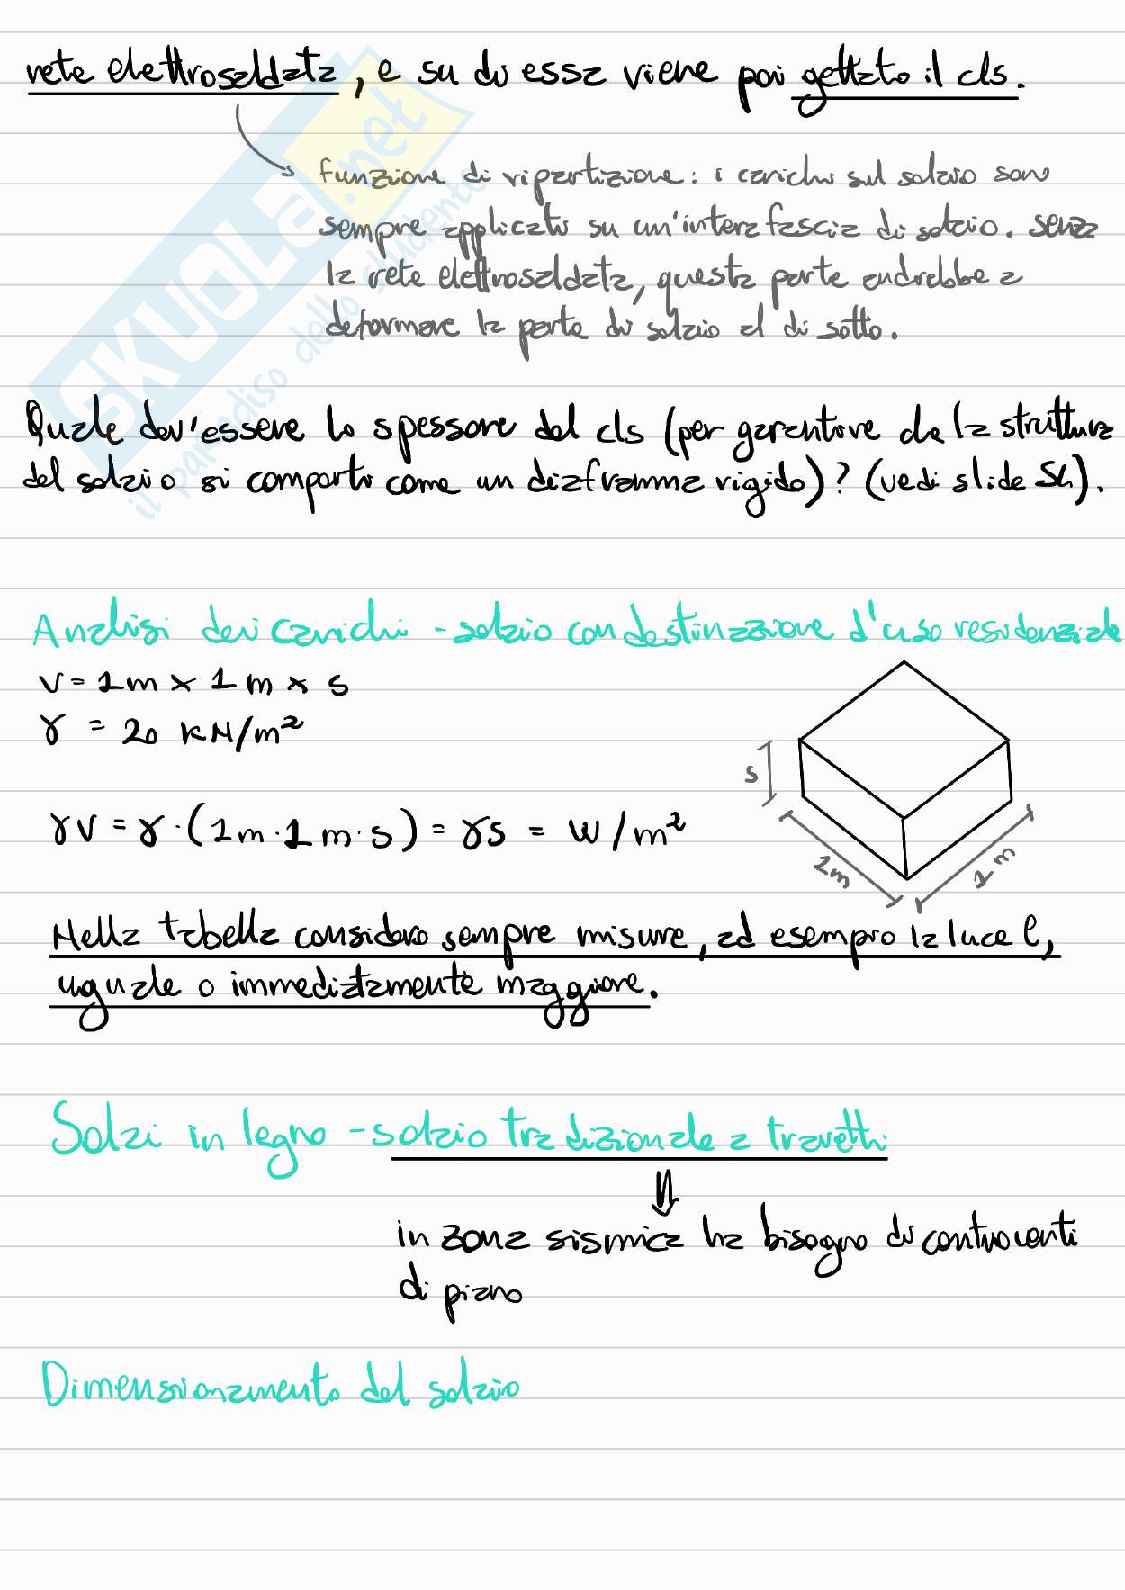 rete elettrosaldata, e su di essa viene poi gettato il cls.
funzione di ripartizione: i carichi sul solaio sono
sempre applicati su un'intera fascia di solaio. senza
la rete elettrosaldata, questa parte andrebbe a
deformare la parte di solaio al di sotto.
Quale dev'essere lo spessore del cls (per garantire che la struttura
del solaio si comporti come un diaframma rigido)? (vedi slide SL).
Analisi dei carichi - solaio con destinazione d'uso residenziale
V = 1m x 1m x s
γ = 20 KN/m²
s
1m
1m
γV = γ·(1m·1m·s) = γs = W/m²
Nella tabella considero sempre misure, ad esempio la luce l,
uguale o immediatamente maggiore.
Solai in legno - solaio tradizionale a travetti
in zona sismica ha bisogno di controventi
di piano
Dimensionamento del solaio
SKUOLA.net
il paradiso dello studente